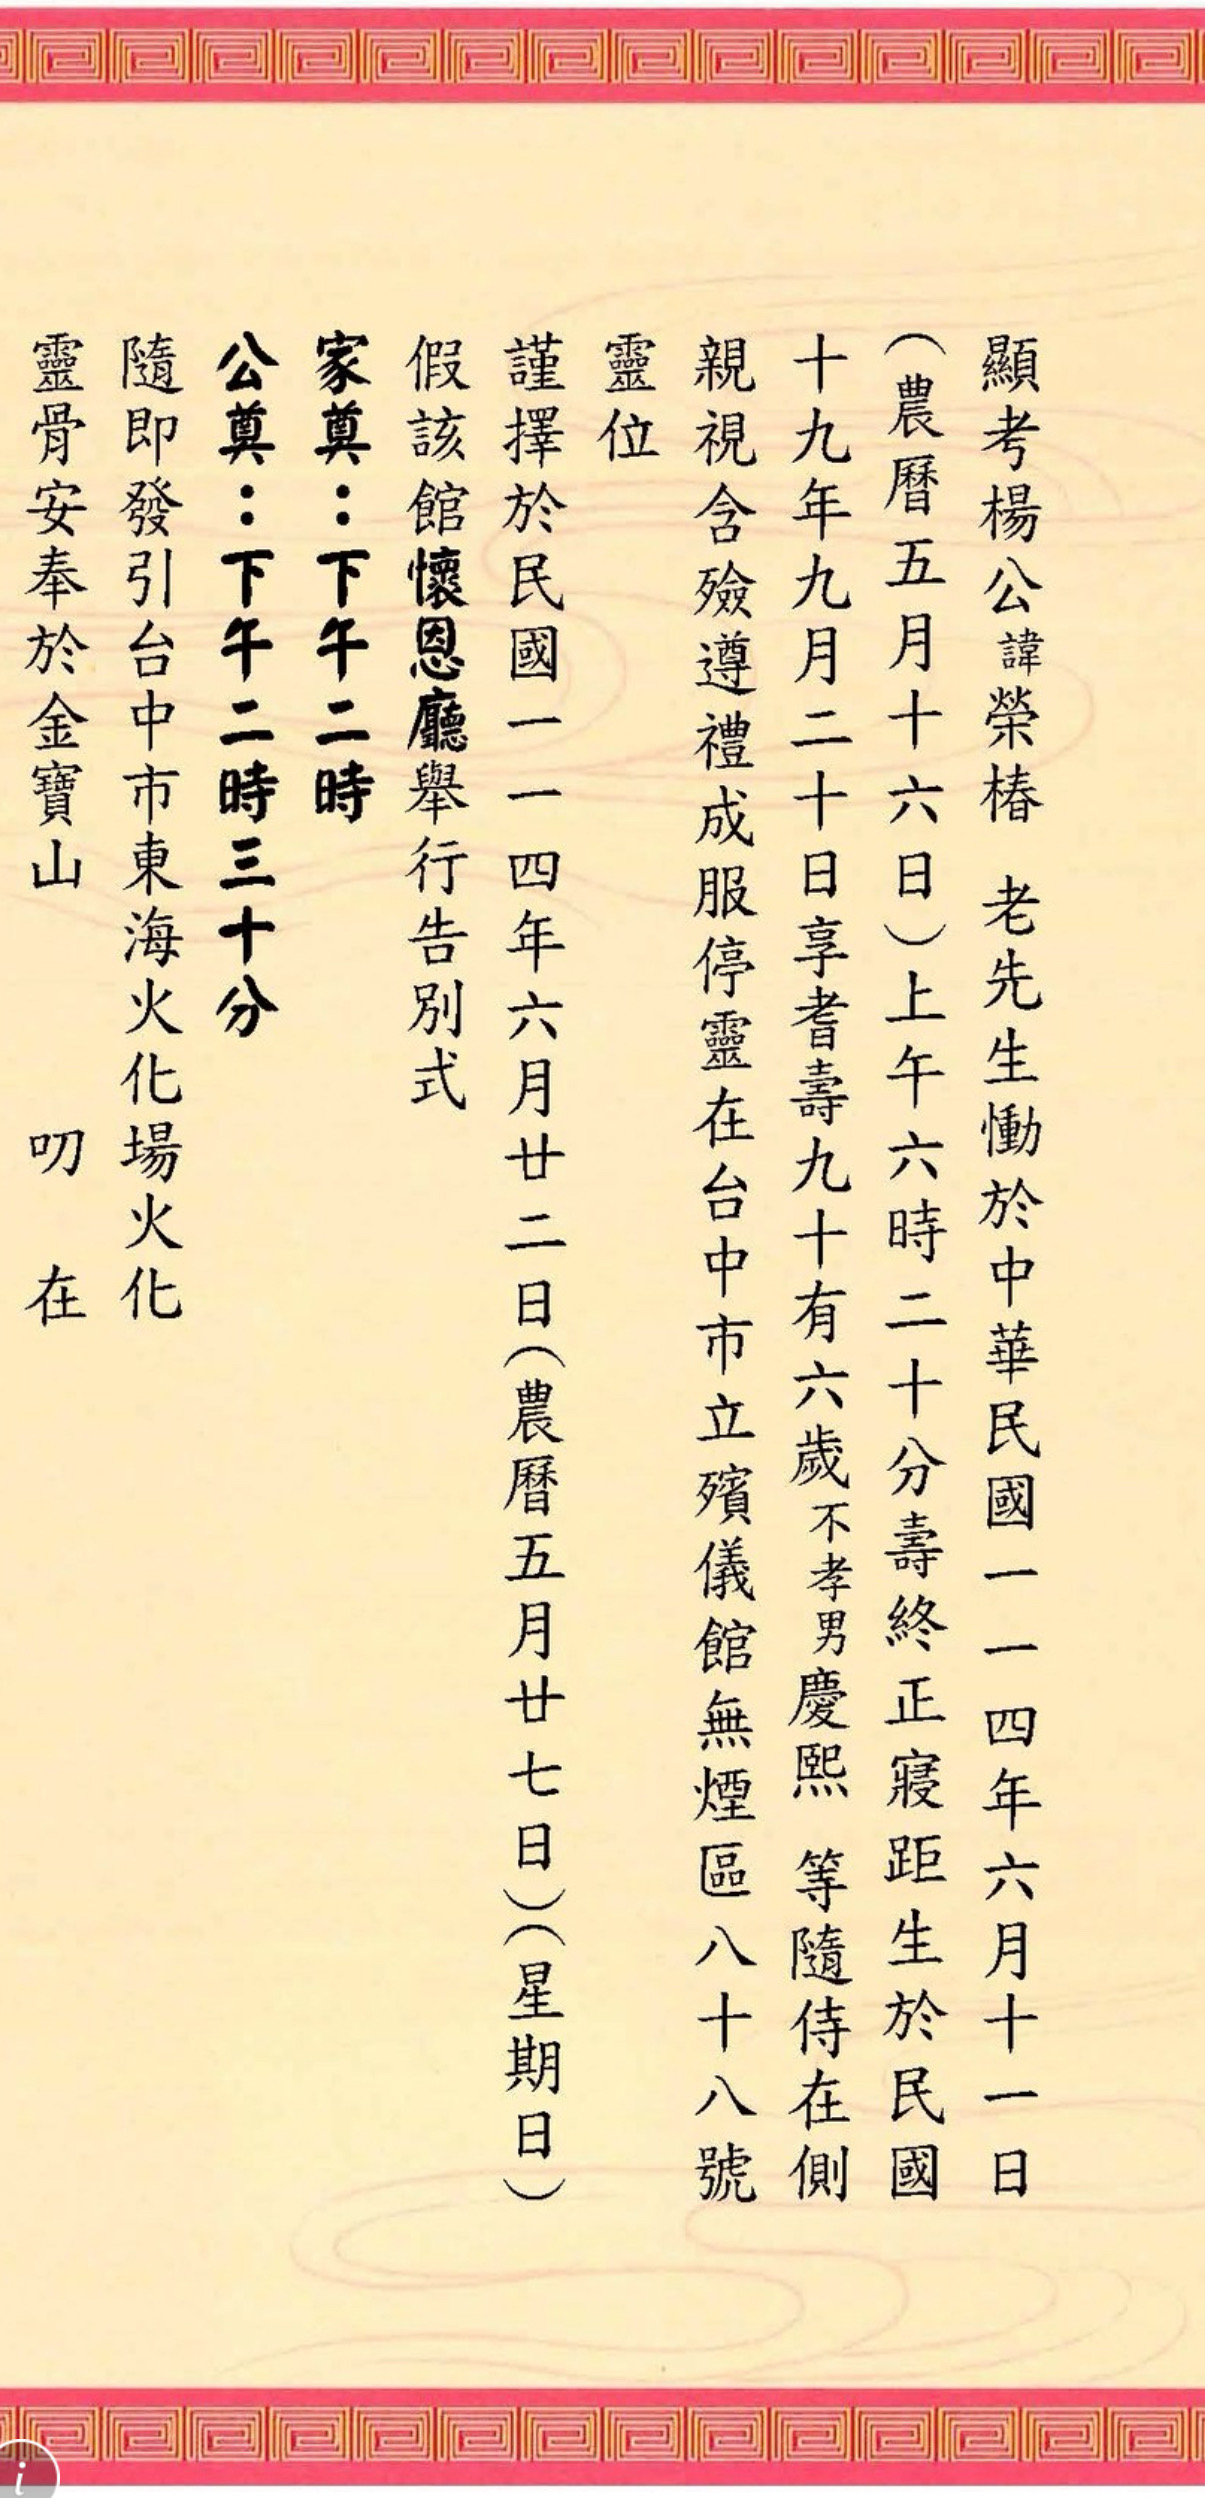 顯考楊公諱榮椿 老先生慟於中華民國一一四年六月十一日
（農曆五月十六日）上午六時二十分壽終正寢距生於民國
十九年九月二十日享耆壽九十有六歲不孝男慶熙 等隨侍在側
親視含殮遵禮成服停靈在台中市立殯儀館無煙區八十八號
靈位
謹擇於民國一一四年六月廿二日（農曆五月廿七日）（星期日）
假該館懷恩廳舉行告別式
家奠：下午二時
公奠：下午二時三十分
隨即發引台中市東海火化場火化
靈骨安奉於金寶山 叨 在
i